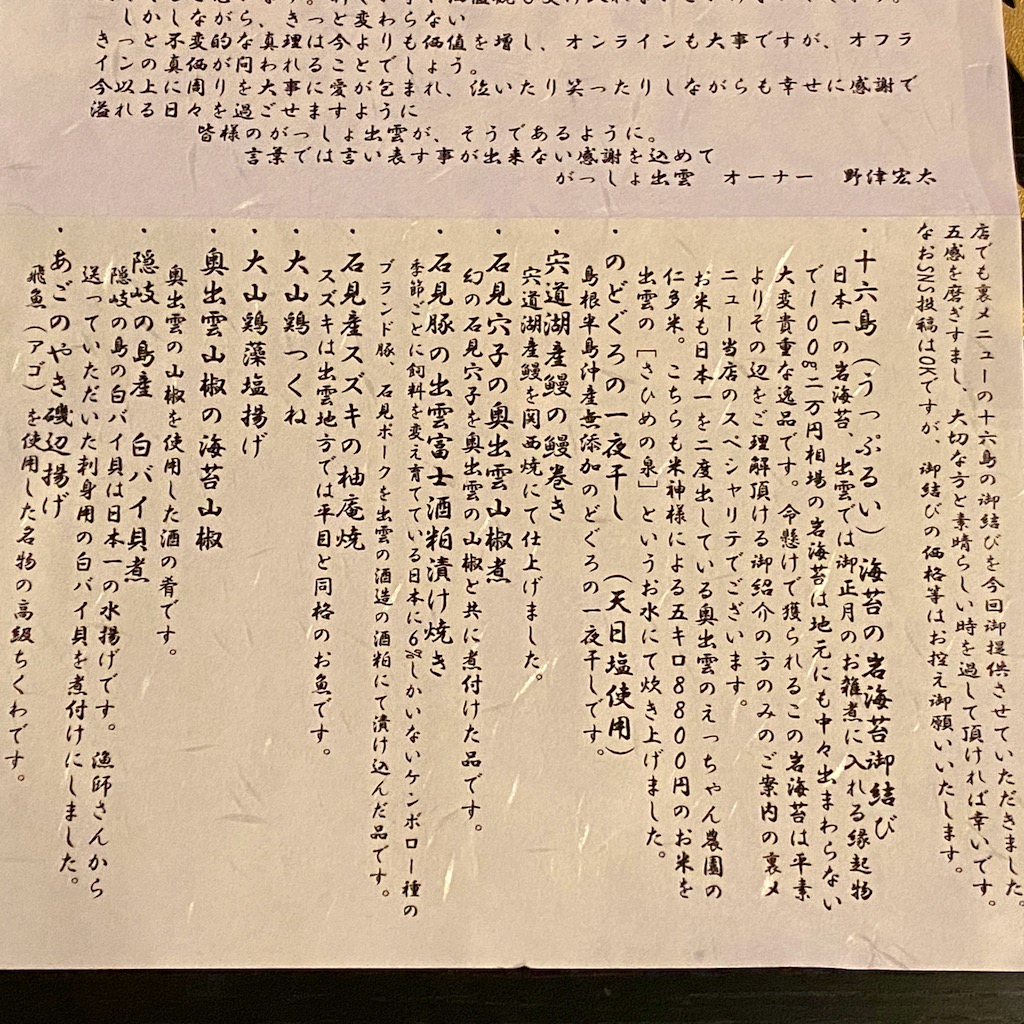 しかしながら、きっと変わらない
きっと不変的な真理は今よりも価値を増し、オンラインも大事ですが、オフラ
インの真価が問われることでしょう。
今以上に周りを大事に愛が包まれ、泣いたり笑ったりしながらも幸せに感謝で
溢れる日々を過ごせますように
皆様のがっしょ出雲が、そうであるように。
言葉では言い表す事が出来ない感謝を込めて
がっしょ出雲 オーナー 野津宏太
店でも裏メニューの十六島の御結びを今回御提供させていただきました。
五感を磨ぎすまし、大切な方と素晴らしい時を過して頂ければ幸いです。
なおSNS投稿はOKですが、御結びの価格等はお控え御願いいたします。
・十六島（うっぷるい）海苔の岩海苔御結び
日本一の岩海苔、出雲では御正月のお雑煮に入れる縁起物
で100g二万円相場の岩海苔は地元にも中々出まわらない
大変貴重な逸品です。命懸けで獲られるこの岩海苔は平素
よりその辺をご理解頂ける御紹介の方のみのご案内の裏メ
ニュー当店のスペシャリテでございます。
お米も日本一を二度出している奥出雲のえっちゃん農園の
仁多米。こちらも米神様による五キロ8800円のお米を
出雲の［さひめの泉］というお水にて炊き上げました。
・のどぐろの一夜干し（天日塩使用）
島根半島沖産無添加のどぐろの一夜干しです。
・宍道湖産鰻の鰻巻き
宍道湖産鰻を関西焼にて仕上げました。
・石見穴子の奥出雲山椒煮
幻の石見穴子を奥出雲の山椒と共に煮付けた品です。
・石見豚の出雲富士酒粕漬け焼き
季節ごとに飼料を変え育てている日本に6%しかいないケンボロー種の
ブランド豚、石見ポークを出雲の酒造の酒粕にて漬け込んだ品です。
・石見産スズキの柚庵焼
スズキは出雲地方では平目と同格のお魚です。
・大山鶏つくね
・大山鶏藻塩揚げ
・奥出雲山椒の海苔山椒
奥出雲の山椒を使用した酒の肴です。
・隠岐の島産 白バイ貝煮
隠岐の島の白バイ貝は日本一の水揚げです。漁師さんから
送っていただいた刺身用の白バイ貝を煮付けにしました。
・あごのやき磯辺揚げ
飛魚（アゴ）を使用した名物の高級ちくわです。